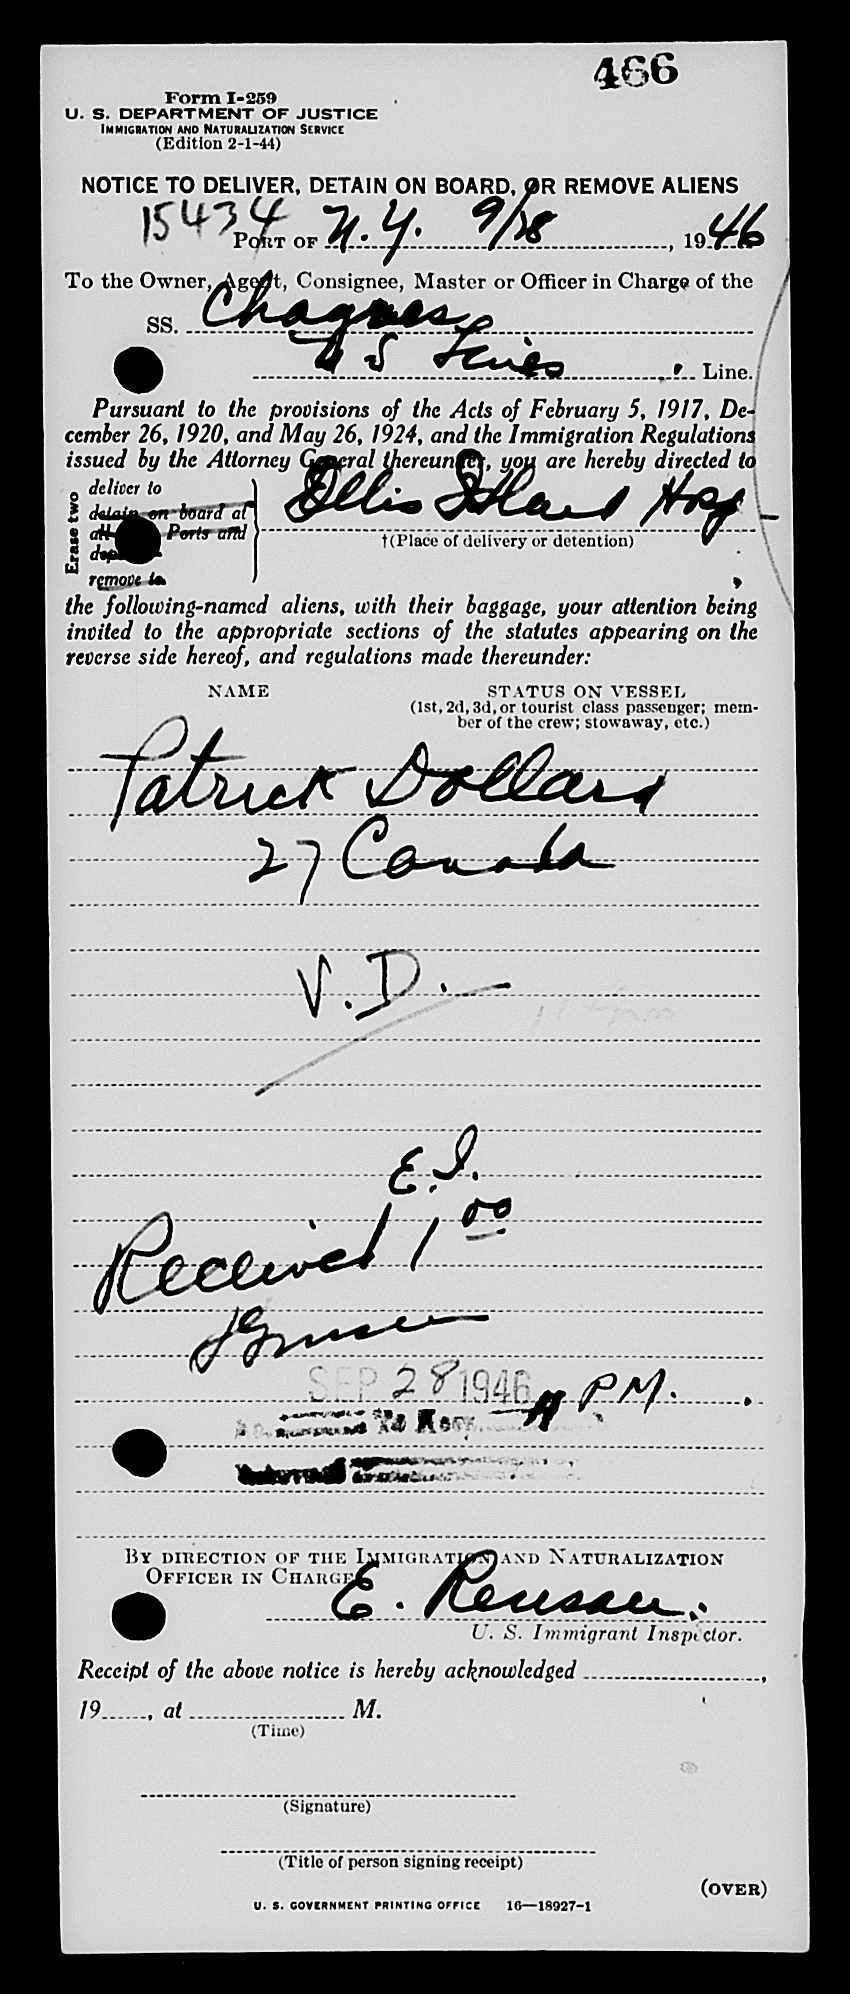 466
Form I-259
U. S. DEPARTMENT OF JUSTICE
IMMIGRATION AND NATURALIZATION SERVICE
(Edition 2-1-44)
NOTICE TO DELIVER, DETAIN ON BOARD, OR REMOVE ALIENS
15434
PORT OF N.Y. 9/28, 1946
To the Owner, Agent, Consignee, Master or Officer in Charge of the
SS. Chagres
U S Lines Line.
Pursuant to the provisions of the Acts of February 5, 1917, De-
cember 26, 1920, and May 26, 1924, and the Immigration Regulations
issued by the Attorney General thereunder, you are hereby directed to
Erase two
deliver to
detain on board at
all Ports and
remove to
Ellis Island Hosp
†(Place of delivery or detention)
the following-named aliens, with their baggage, your attention being
invited to the appropriate sections of the statutes appearing on the
reverse side hereof, and regulations made thereunder:
NAME
STATUS ON VESSEL
(1st, 2d, 3d, or tourist class passenger; mem-
ber of the crew; stowaway, etc.)
Patrick Dollard
27 Canada
V.D.
E.I.
Received 1 00
SEP 28 1946 PM.
To Hosp.
BY DIRECTION OF THE IMMIGRATION AND NATURALIZATION
OFFICER IN CHARGE
E. Renson
U. S. Immigrant Inspector.
Receipt of the above notice is hereby acknowledged ,
19 , at M.
(Time)
(Signature)
(Title of person signing receipt)
(OVER)
U. S. GOVERNMENT PRINTING OFFICE 16—18927-1